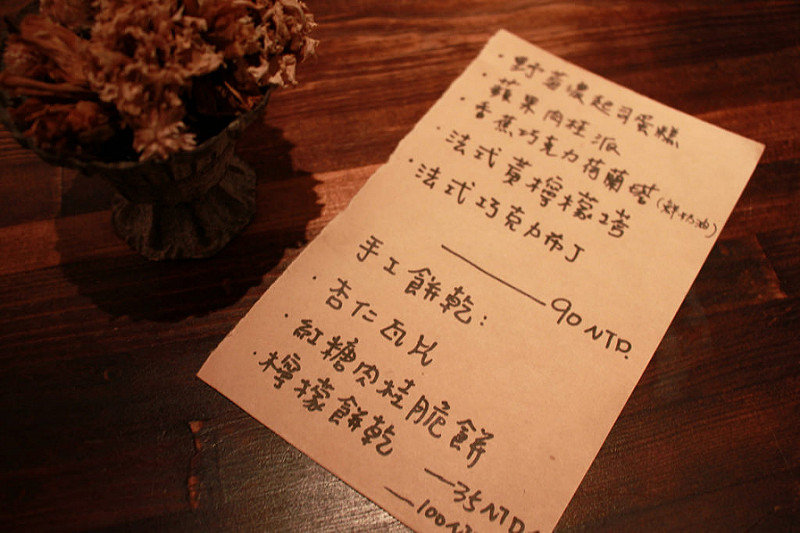 · 野莓濃起司蛋糕
· 蘋果肉桂派
· 香蕉巧克力荷蘭塔(鮮奶油)
· 法式黃檸檬塔
· 法式巧克力布丁
—— 90 NTD.
手工餅乾:
· 杏仁瓦片
· 紅糖肉桂脆餅
· 檸檬餅乾
— 35 NTD
— 100 NT